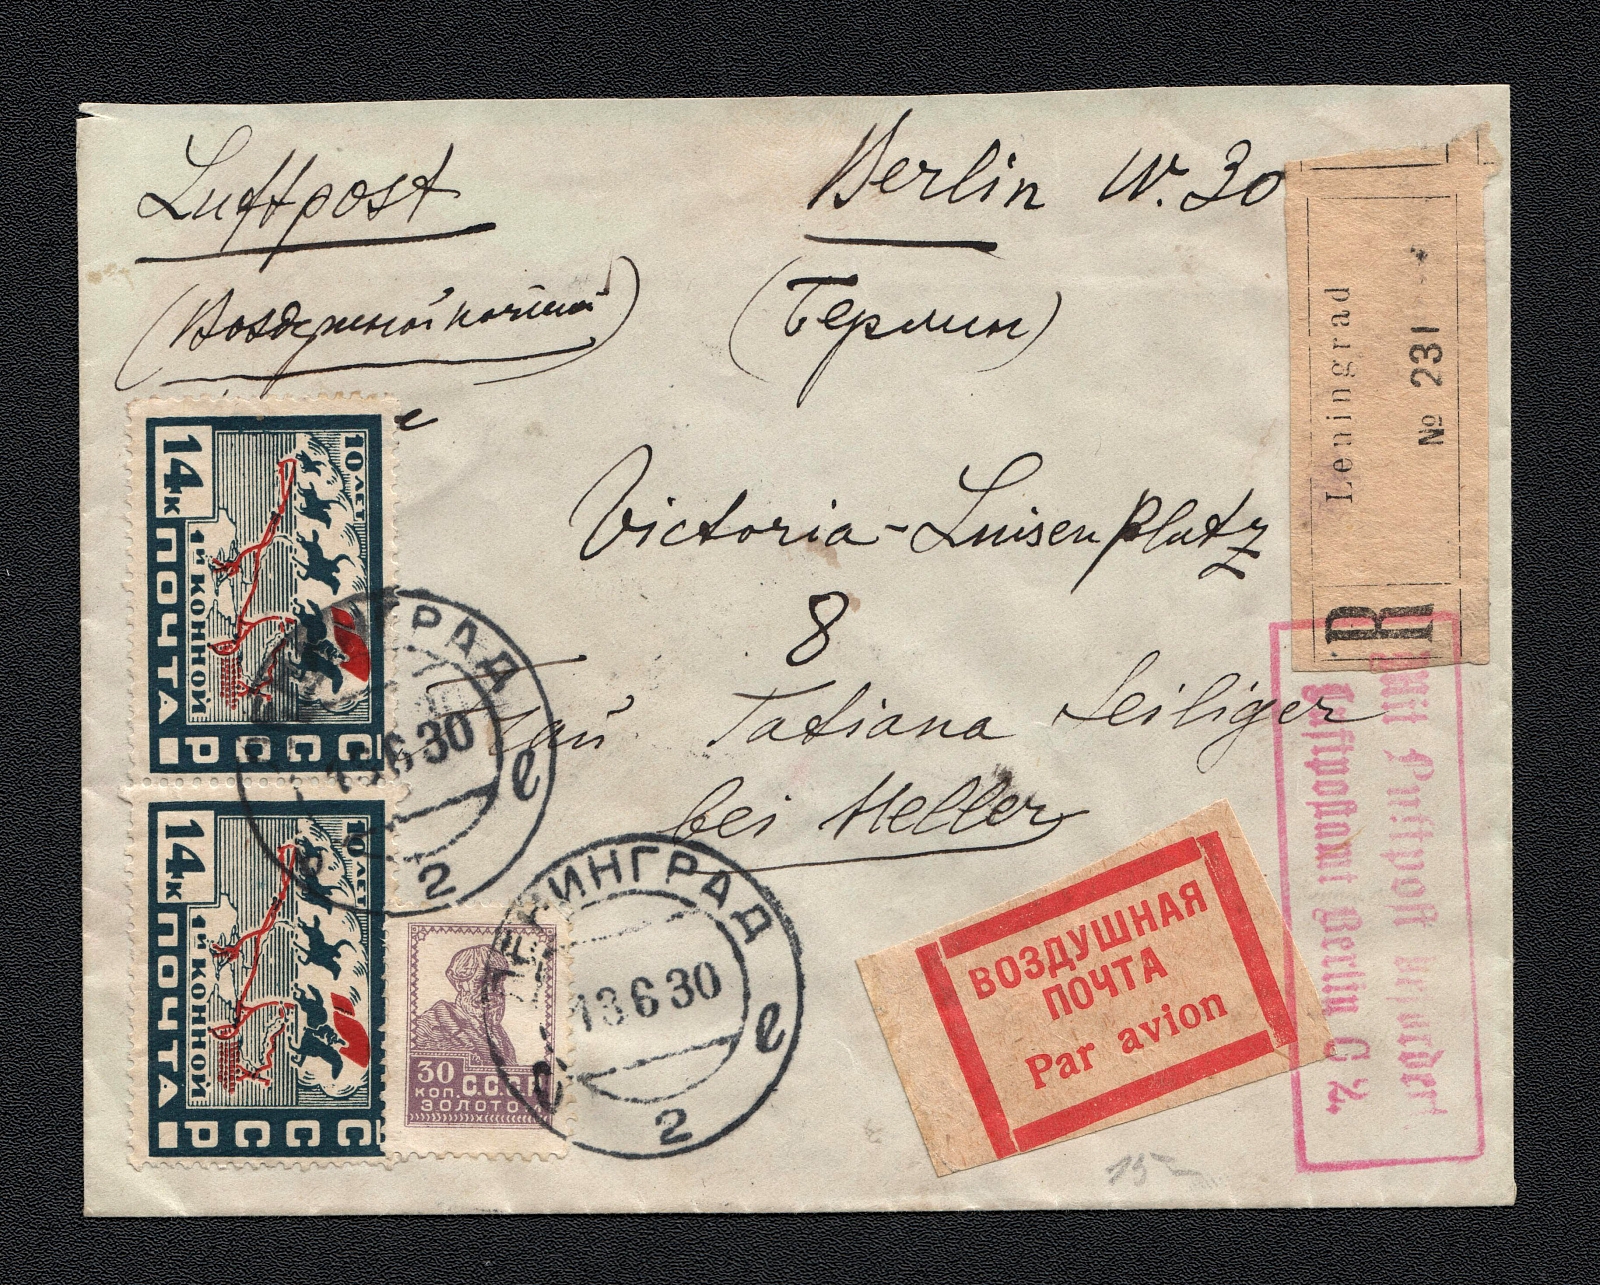 Luftpost
(Воздушной почтой)
Berlin W. 30
(Берлин)
Victoria-Luisenplatz
8
Frau Tatiana Seiliger
bei Heller
Leningrad
№ 231
R
14К
ПОЧТА
10 ЛЕТ
1Й КОННОЙ
СССР
14К
ПОЧТА
10 ЛЕТ
1Й КОННОЙ
СССР
30
КОП. С.С.С.Р
ЗОЛОТОМ
ЛЕНИНГРАД
13 6 30
е
2
ЛЕНИНГРАД
13 6 30
е
2
ВОЗДУШНАЯ
ПОЧТА
Par avion
Mit Luftpost befördert
Luftpostamt Berlin C 2.
15